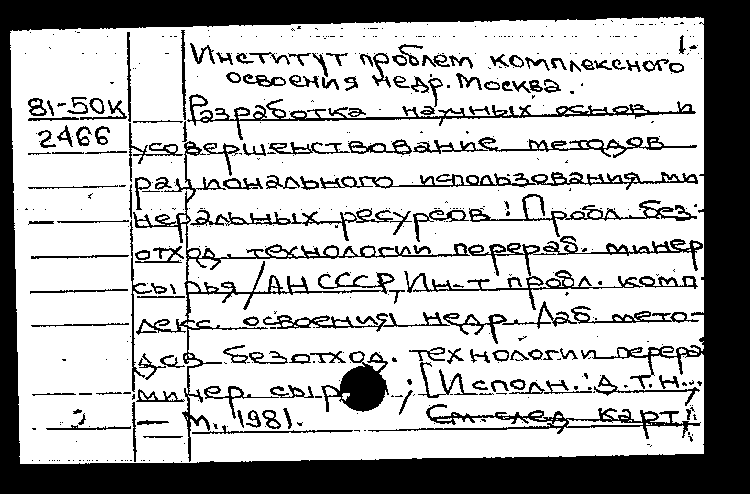 1.
Институт проблем комплексного
освоения недр. Москва.
81-50К Разработка научных основ и
2466 усовершенствование методов
рационального использования ми-
неральных ресурсов : Пробл. без-
отход. технологии перераб. минер
сырья / АН СССР, Ин-т пробл. комп-
лекс. освоения недр. Лаб. мето-
дов безотход. технологии перераб
минер. сыр ; [Исполн.: д.т.н...
— М., 1981. См. след. карт.